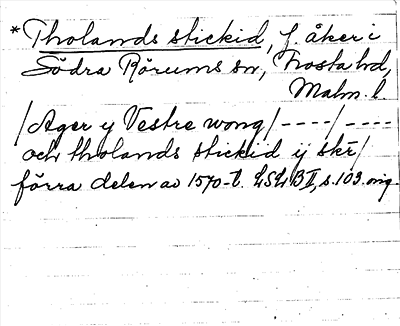 *Tholands stickid, f. åker i
Södra Rörums sn, Frosta hd,
Malm. l.
/Ager y Vestre wong/----/----
och tholands stickid ij skr/
förra delen av 1570-t. LSLB II, s. 103. orig.